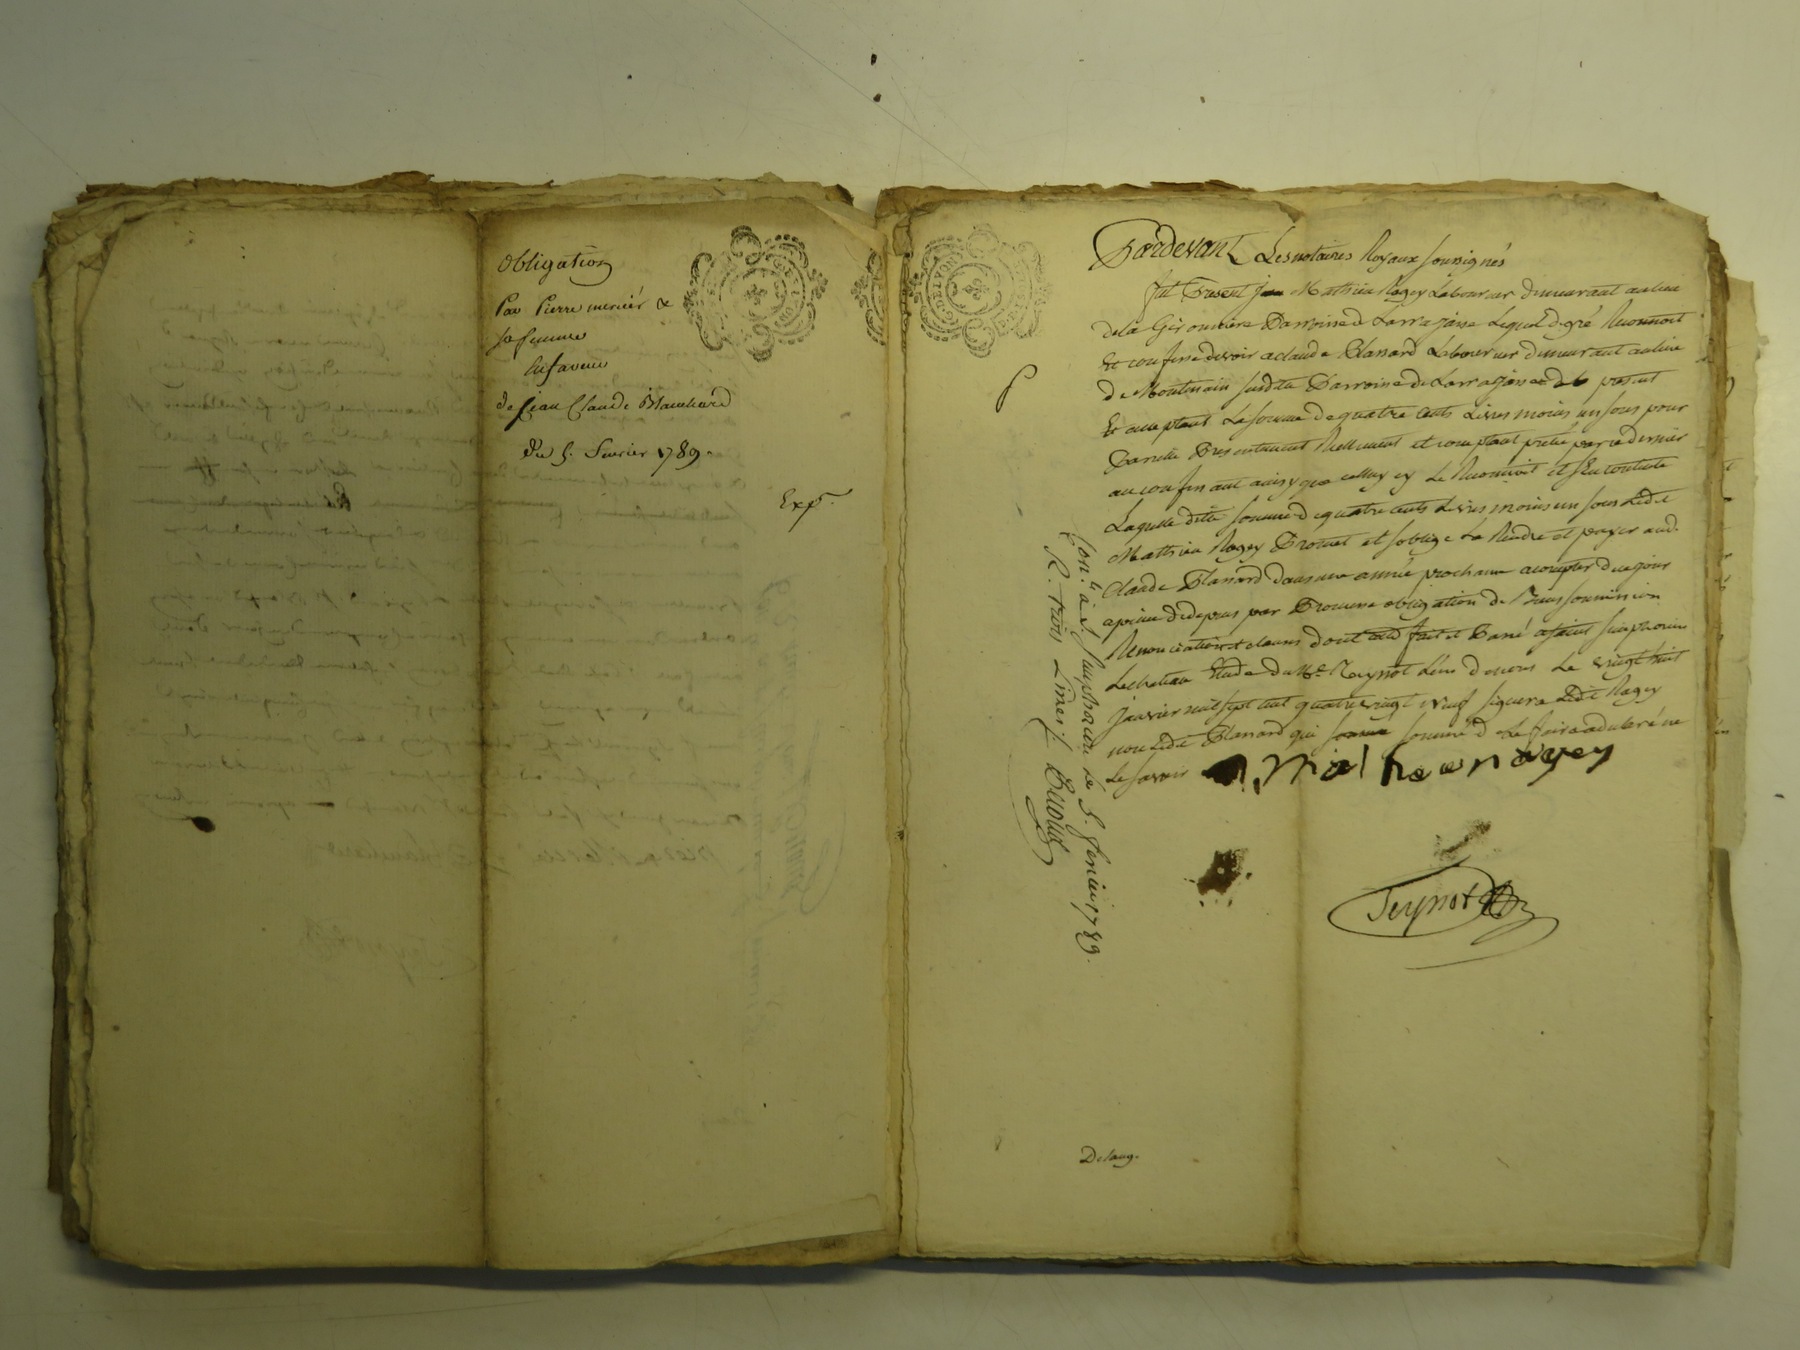 Obligation
Par Pierre mercier &
sa femme
en faveur
de Jean Claude Blanchard
Du 5. Fevrier 1789.
Exp.
Pardevant Les notaires Royaux soussignés
fut Present Mathieu Ragey Laboureur demeurant au lieu
de la Gironniere Parroisse de Larrajasse Lequel de gré Reconnoit
Et confesse devoir a claude Blassard Laboureur demeurant au lieu
de susditte Parroisse de Larrajasse present
Et acceptant La somme de quatre cents Livres moins un sous pour
Presentement Reellement et comptant preté par ce dernier
au confessant ainsy que celluy cy Le Reconnoit et s'En contente
Laquelle ditte somme de quatre cents Livres moins un sous Ledit
Mathieu Ragey Promet et s'oblige La Rendre et payer aud.
Claude Blassard dans une année prochaine a compter de ce jour
a peine de depens par Promesse obligation de Biens soumission
Renonciation et clauses dont acte fait et Passé a saint simphorien
Le chateau Etude de Me. Teynot L'un de nous Le vingt huit
Janvier mil sept cent quatre vingt neuf signera Ledit Ragey
non Ledit Blassard qui sommé de Le faire a declaré ne
Le savoir
Mathieu ragey
Teynot
Con.lé à St. Simphorien le 5. fevrier 1789.
R. trois Livres
Delaug.